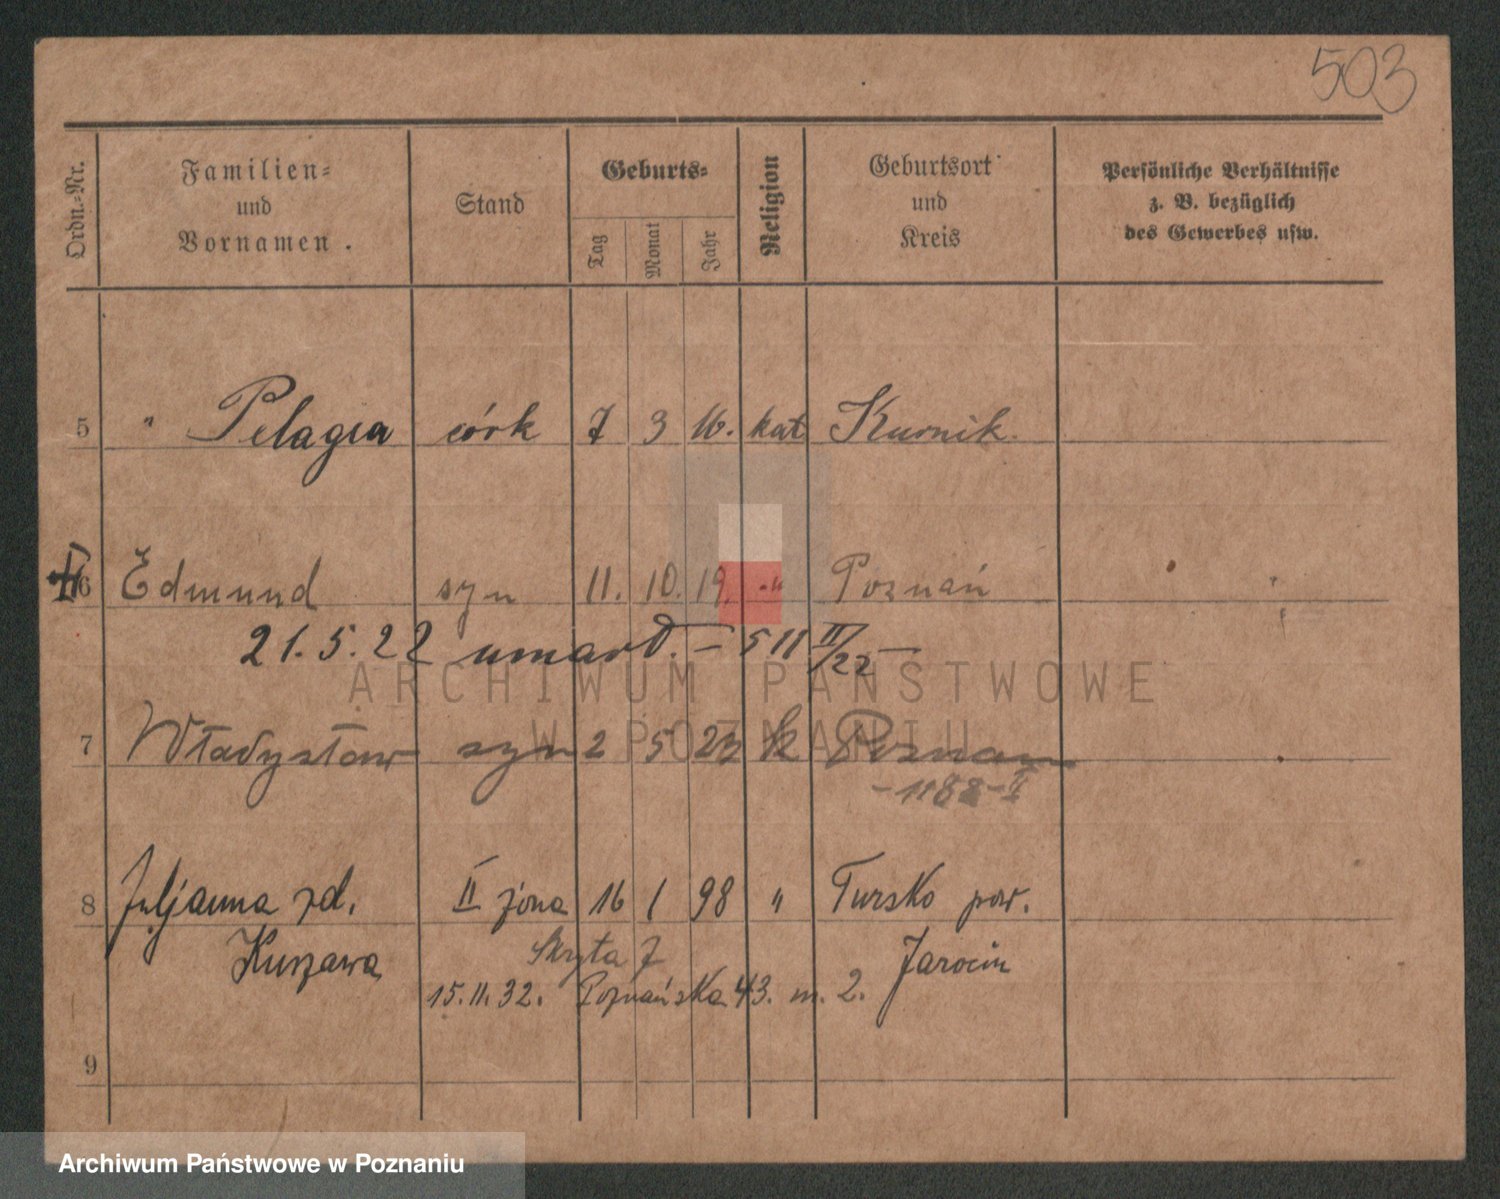 503
Ordn.-Nr.
Familien-
und
Vornamen.
Stand
Geburts-
Tag
Monat
Jahr
Religion
Geburtsort
und
Kreis
Persönliche Verhältnisse
z. B. bezüglich
des Gewerbes usw.
5 " Pelagia córk 7 3 16. kat Kurnik.
6 Edmund syn 11. 10. 19. " Poznań
21.5.22 umarł. – 511 II/22 –
ARCHIWUM PAŃSTWOWE
W POZNANIU
7 Władysław syn 2 5 23 k Poznań
- 1188 - II
8 Juljanna zd. II żona 16 1 98 " Tursko pow.
Kurzawa Skryta 7 Jarocin
15.11.32. Poznańska 43. m. 2.
9
Archiwum Państwowe w Poznaniu